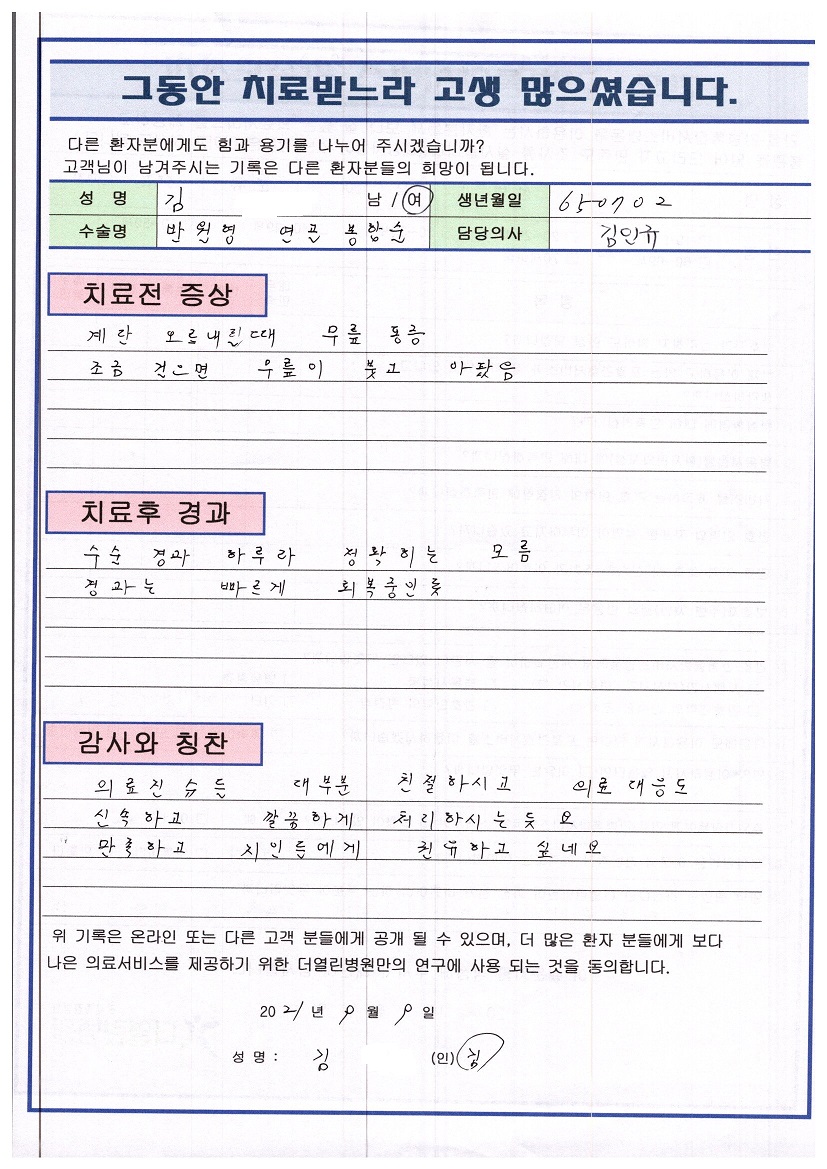 그동안 치료받느라 고생 많으셨습니다.
다른 환자분에게도 힘과 용기를 나누어 주시겠습니까?
고객님이 남겨주시는 기록은 다른 환자분들의 희망이 됩니다.
성 명 김 남 / 여 생년월일 650702
수술명 반월영 연골 봉합순 담당의사 김인규
치료전 증상
계란 오르내릴때 무릎 통증
조금 걷으면 무릎이 붓고 아팠음
치료후 경과
수순 경과 하루라 정확히는 모름
경과는 빠르게 회복중인듯
감사와 칭찬
의료진들 대부분 친절하시고 의료대응도
신속하고 깔끔하게 처리하시는듯 요
만족하고 지인들에게 권유하고 싶네요
위 기록은 온라인 또는 다른 고객 분들에게 공개 될 수 있으며, 더 많은 환자 분들에게 보다
나은 의료서비스를 제공하기 위한 더열린병원만의 연구에 사용 되는 것을 동의합니다.
2021 년 9 월 9 일
성 명 : 김 (인) 김